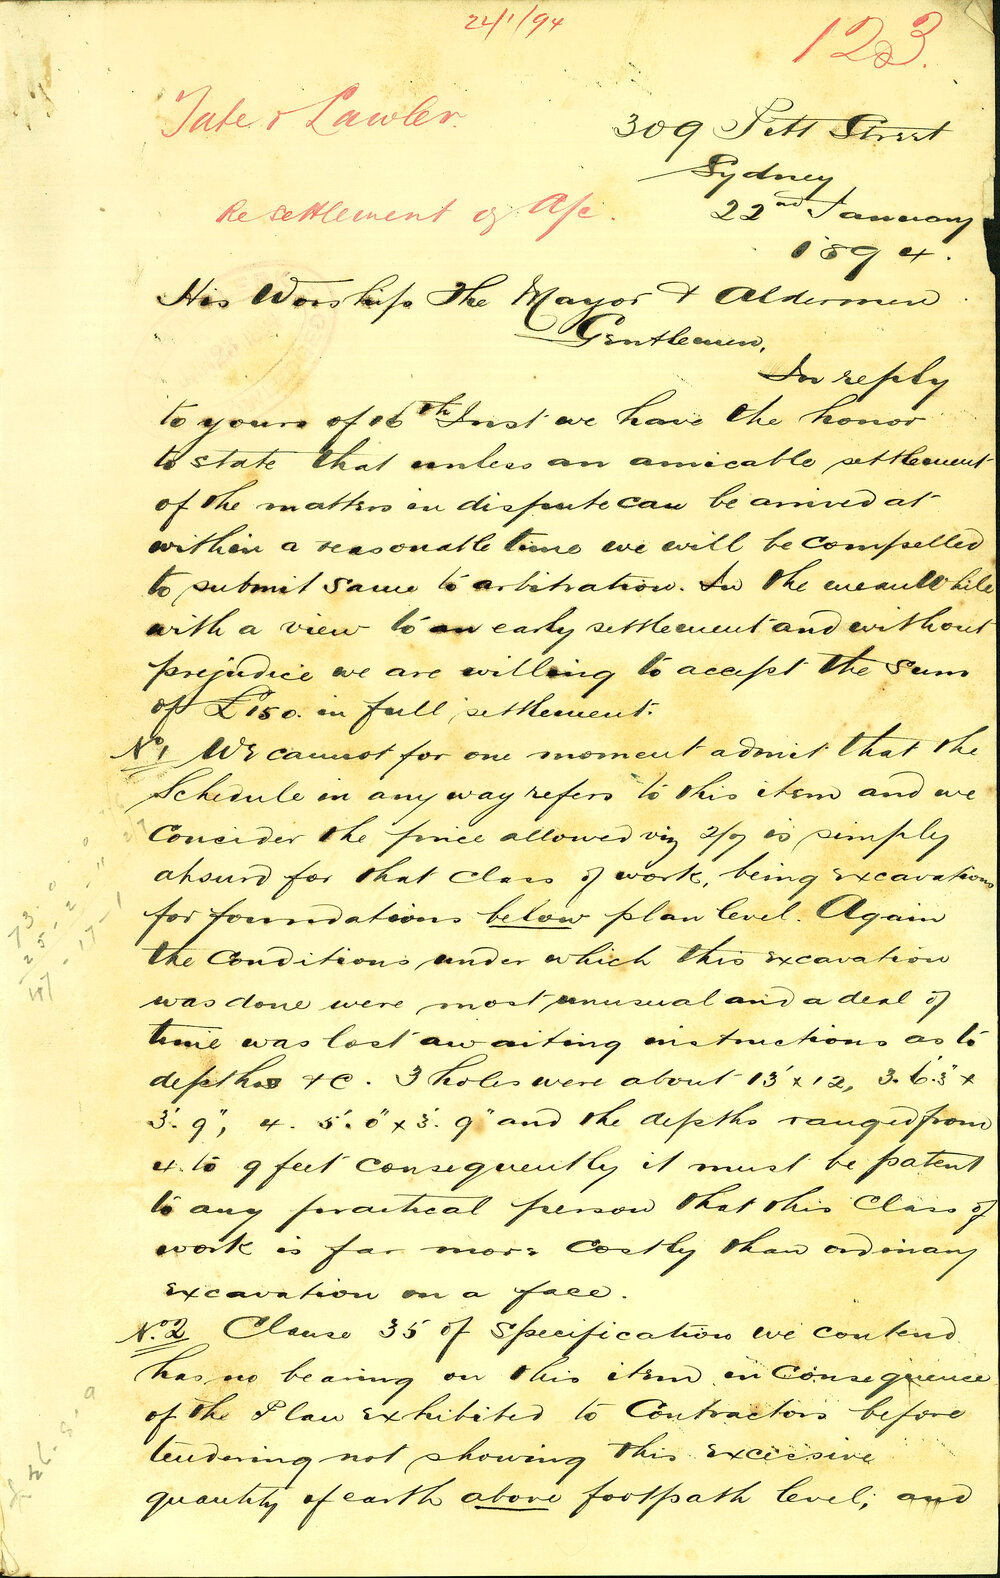 24/1/94
123.
Tate & Lawler.
309 Pitt Street
Sydney
Re settlement of A/c.
22nd January
1894.
His Worship the Mayor & Aldermen
Gentlemen,
In reply
to yours of 16th Inst we have the honor
to state that unless an amicable settlement
of the matters in dispute can be arrived at
within a reasonable time we will be compelled
to submit same to arbitration. In the meanwhile
with a view to an early settlement and without
prejudice we are willing to accept the sum
of £150. in full settlement.
No. 1 We cannot for one moment admit that the
Schedule in any way refers to this item and we
consider the price allowed viz 2/9 is simply
absurd for that class of work, being excavations
for foundations below plan level. Again
the conditions under which this excavation
was done were most unusual and a deal of
time was lost awaiting instructions as to
depths &c. 3 holes were about 13' x 12, 3. 6'. 3" x
3'. 9", 4. 5'. 0" x 3'. 9" and the depths ranged from
4. to 9 feet consequently it must be patent
to any practical person that this class of
work is far more costly than ordinary
excavation on a face.
No. 2 Clause 35 of Specification we contend
has no bearing on this item in consequence
of the Plan exhibited to Contractors before
tendering not showing this excessive
quantity of earth above footpath level; and